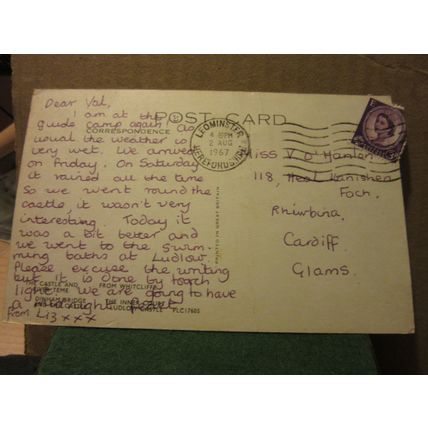 Dear Val,
I am at the
guide camp again as
usual the weather is
very wet. We arrived
on Friday. On Saturday
it rained all the time
So we went round the
castle, it wasn't very
interesting. Today it
was a bit better and
we went to the swim-
ming baths at Ludlow.
Please excuse the writing
but it is done by torch
light. We are going to have
a midnight feast
from Liz xxx
POST CARD
CORRESPONDENCE
LEOMINSTER
4 PM
2 AUG
1967
HEREFORDSHIRE
Miss V O'Hanlon
118, Heol Llanishen
Fach.
Rhiwbina.
Cardiff.
Glams.
PRINTED IN GREAT BRITAIN
CASTLE AND
TEME
FROM WHITCLIFFE
DINHAM BRIDGE
THE INNER
LUDLOW CASTLE
PLC17605